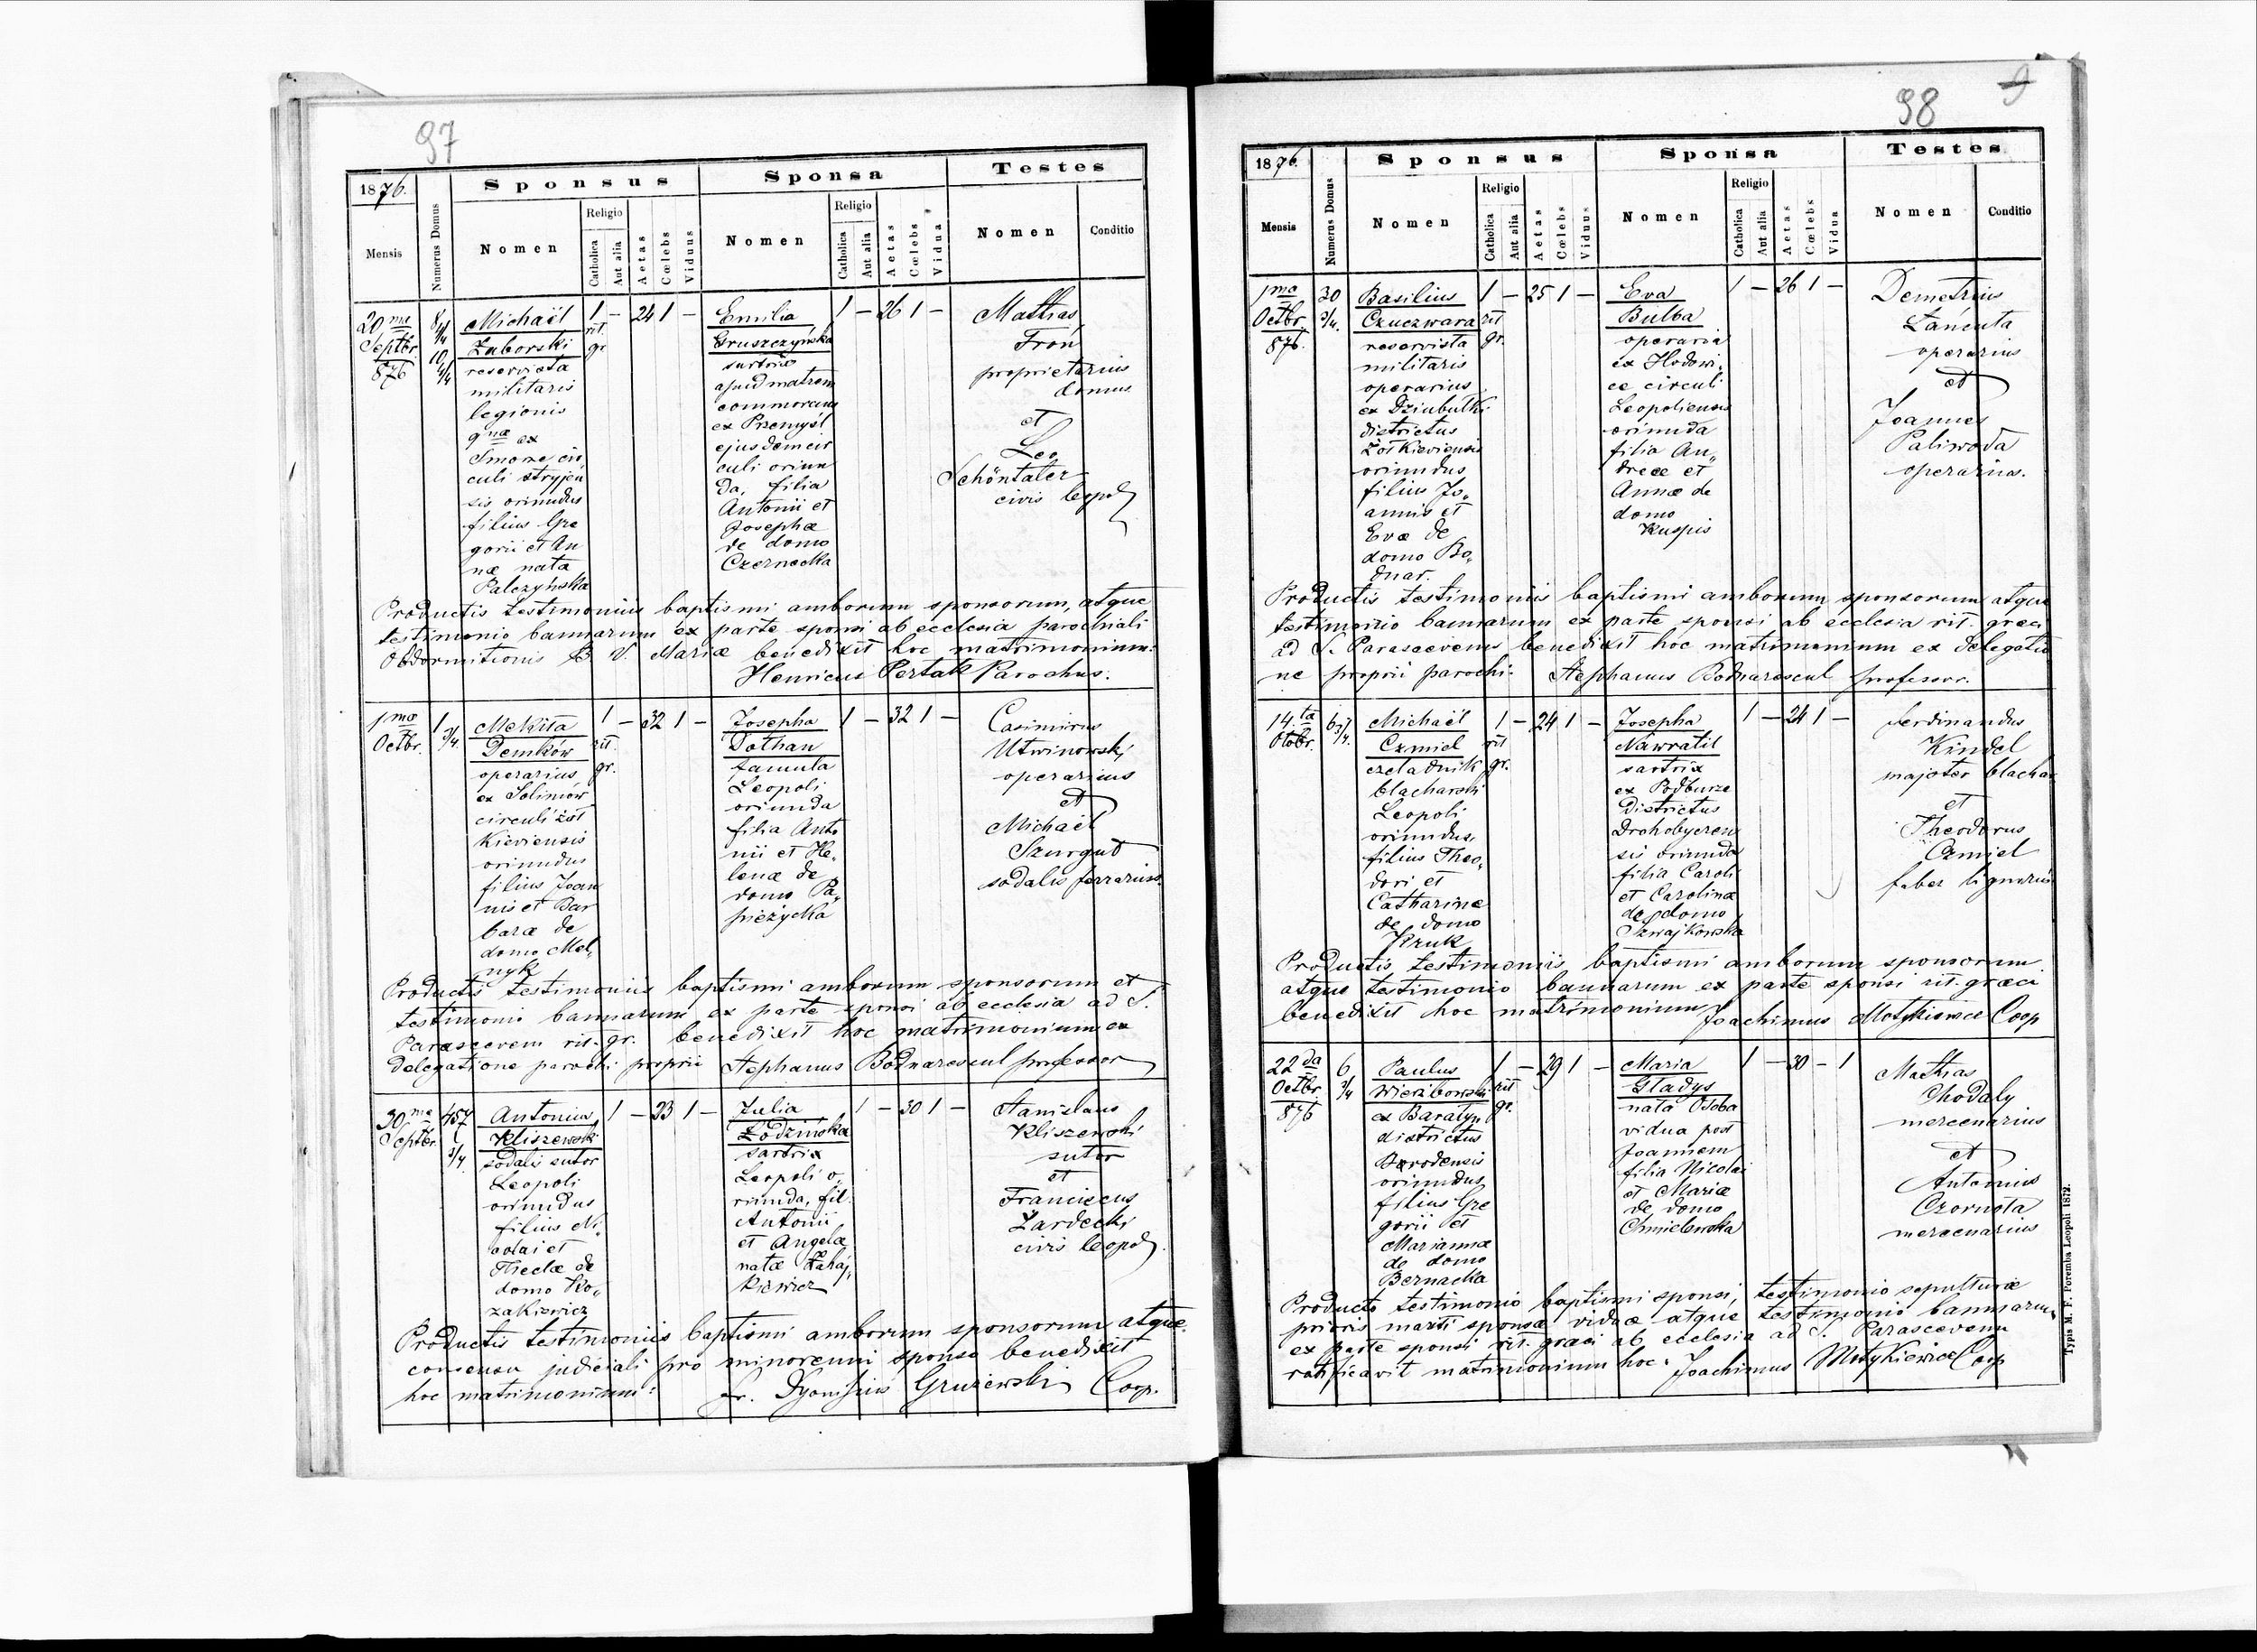 97
1876.
Mensis
Numerus Domus
Sponsus
Nomen
Religio
Catholica
Aut alia
Aetas
Cœlebs
Viduus
Sponsa
Nomen
Religio
Catholica
Aut alia
Aetas
Cœlebs
Vidua
Testes
Nomen
Conditio
20 ma
Septbr
876
8 4/4
10 3/4
Michaël
Zaborski
reservista
militaris
legionis
9næ ex
Smorze cir
culi stryjen
sis oriundus
filius Gre
gorii et An
næ nata
Palczyńska
1 rit. gr
—
24
1
—
Emilia
Gruszczyńska
sartrix
apud matrem
commorans
ex Przemyśl
ejusdem cir
culi oriun
da, filia
Antonii et
Josephæ
de domo
Czernecka
1
—
26
1
—
Mathias
Froń
proprietarius
domus
et
Leo
Schöntaler
civis leopol
Productis testimoniis baptismi amborum sponsorum, atque
testimonio bannarum ex parte sponsi ab ecclesia parochiali
Obdormitionis B. V. Mariæ benedixit hoc matrimonium:
Henricus Pertak Parochus.
1ma
Octbr.
1 3/4.
Mekita
Demków
operarius
ex Soliniów
circuli żół
kieviensis
oriundus
filius Joan
nis et Bar
baræ de
domo Mel„
nyk
1 rit. gr.
—
32
1
—
Josepha
Dothan
famula
Leopoli
oriunda
filia Anto
nii et He„
lenæ de
domo Pa„
pieżycka
1
—
32
1
—
Casimirus
Utwinowski
operarius
et
Michaël
Szurgut
sodalis ferrarius.
Productis testimoniis baptismi amborum sponsorum et
testimonio bannarum ex parte sponsi ab ecclesia ad S.
Parascevem rit. gr. benedixit hoc matrimonium ex
delegatione parochi proprii Stephanus Bodnarescul professor
30ma
Septbr.
457
3/4.
Antonius
Kliszewski
sodalis sutor
Leopoli
oriundus
filius Ni„
colai et
Theclæ de
domo Ko„
zakiewicz
1
—
23
1
—
Julia
Łodzińska
sartrix
Leopoli o„
riunda, fil.
Antonii
et Angelæ
natæ Zahaj„
kiewicz
1
—
30
1
—
Stanislaus
Kliszewski
sutor
et
Franciscus
Zardecki
civis leopol.
Productis testimoniis baptismi amborum sponsorum atque
consensu judiciali pro minorenni sponso benedixit
hoc matrimonium: fr. Dyonisius Gruzewski Coop.
98
9
1876.
Mensis
Numerus Domus
Sponsus
Nomen
Religio
Catholica
Aut alia
Aetas
Cœlebs
Viduus
Sponsa
Nomen
Religio
Catholica
Aut alia
Aetas
Cœlebs
Vidua
Testes
Nomen
Conditio
1ma
Octbr.
876.
30
3/4.
Basilius
Czuczwara
reservista
militaris
operarius
ex Dziubułki
districtus
Żółkieviensis
oriundus
filius Jo„
annis et
Evæ de
domo Bo„
dnar.
1 rit gr.
—
25
1
—
Eva
Bulba
operaria
ex Hodowi„
ce circuli
Leopoliensis
oriunda
filia An„
dreæ et
Annæ de
domo
Kuspis
1
—
26
1
—
Demetrius
Łańcuta
operarius
et
Joannes
Paliwoda
operarius.
Productis testimoniis baptismi amborum sponsorum atque
testimonio bannarum ex parte sponsi ab ecclesia rit. græci
ad S. Parascevenus benedixit hoc matrimonium ex delegatio
ne proprii parochi: Stephanus Bodnarescul professor.
14.ta
Otobr.
637
3/4.
Michaël
Czmiel
czeladnik
blacharski
Leopoli
oriundus,
filius Theo„
dori et
Catharinæ
de domo
Kruk
1 rit gr.
—
24
1
—
Josepha
Nawratil
sartrix
ex Podburze
districtus
Drohobyczen
sis oriunda
filia Caroli
et Carolinæ
de domo
Szwajkowska
1
—
24
1
—
Ferdinandus
Kindel
majster blachar
et
Theodorus
Czmiel
faber lignarius
Productis testimoniis baptismi amborum sponsorum
atque testimonio bannarum ex parte sponsi rit. græci
benedixit hoc matrimonium Joachimus Motykiewicz Coop
22da
Octbr.
876
6
3/4
Paulus
Wierzbowski
ex Baratyn
districtus
Brodensis
oriundus
filius Gre
gorii et
Mariannæ
de domo
Bernacka
1 rit gr.
—
29
1
—
Maria
Gladys
nata Osoba
vidua post
Joannem
filia Nicolai
et Mariæ
de domo
Chmielewska
1
—
30
—
1
Mathias
Chodaly
mercenarius
et
Antonius
Czornota
mercenarius
Producto testimonio baptismi sponsi, testimonio sepulturæ
prioris mariti sponsæ viduæ atque testimonio bannarum
ex parte sponsi rit. græci ab ecclesia ad S. Parascevenu
ratificavit matrimonium hoc: Joachimus Motykiewicz Coop
Typis M. F. Poremba Leopoli 1872.